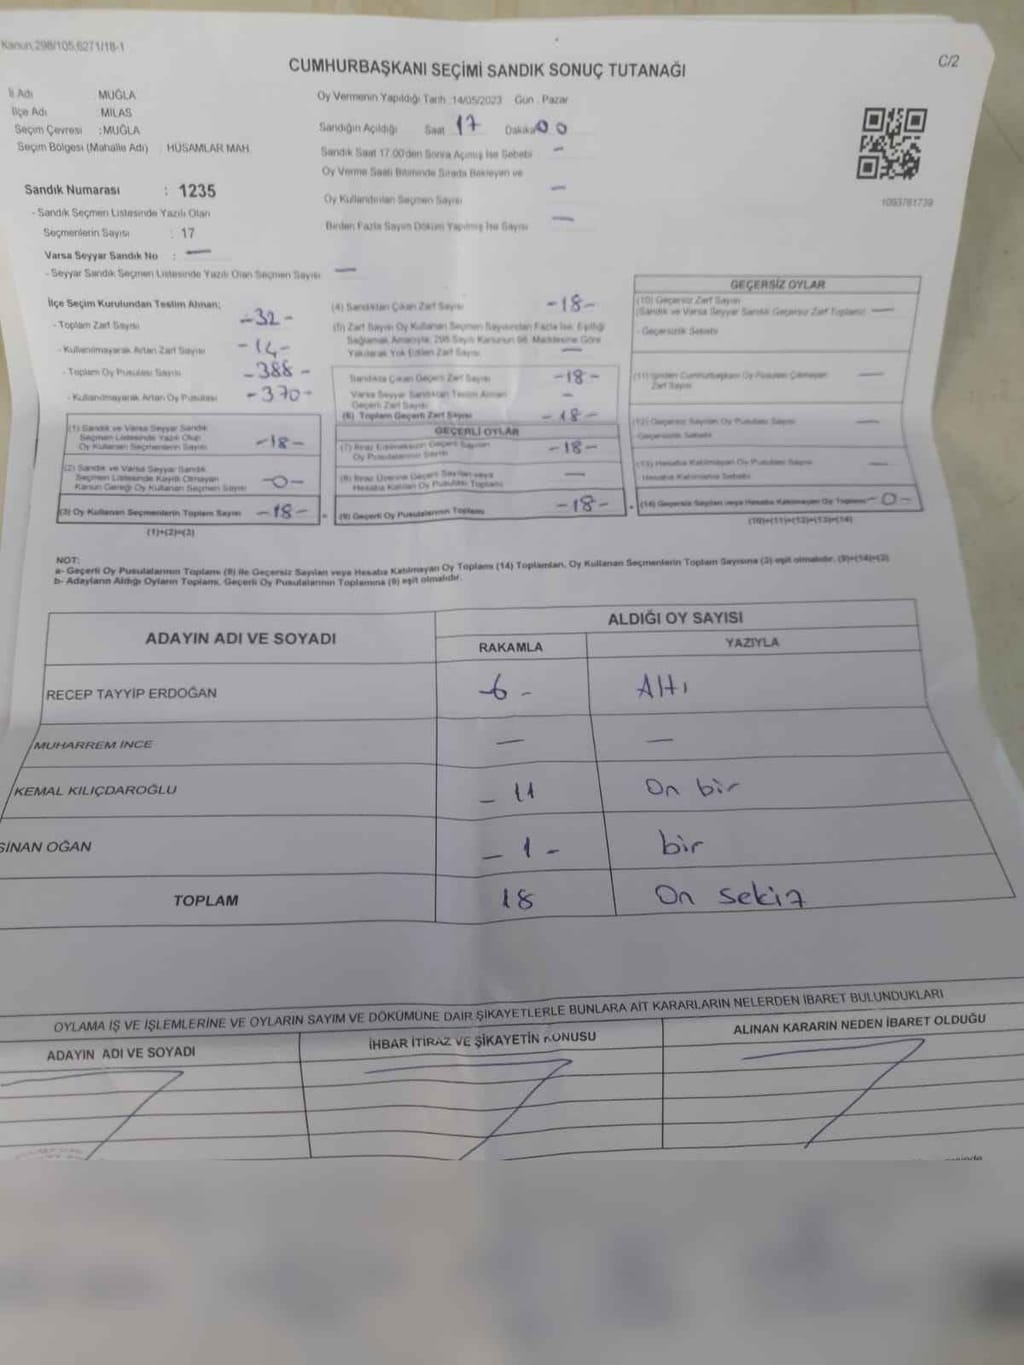 Kanun,298/105,6271/18-1
C/2
CUMHURBAŞKANI SEÇİMİ SANDIK SONUÇ TUTANAĞI
İl Adı MUĞLA
İlçe Adı MİLAS
Seçim Çevresi :MUĞLA
Seçim Bölgesi (Mahalle Adı) : HÜSAMLAR MAH.
Sandık Numarası : 1235
- Sandık Seçmen Listesinde Yazılı Olan
Seçmenlerin Sayısı : 17
Varsa Seyyar Sandık No : —
- Seyyar Sandık Seçmen Listesinde Yazılı Olan Seçmen Sayısı —
Oy Vermenin Yapıldığı Tarih :14/05/2023 Gün : Pazar
Sandığın Açıldığı Saat 17 Dakika 00
Sandık Saat 17.00'den Sonra Açılmış İse Sebebi —
Oy Verme Saati Bitiminde Sırada Bekleyen ve
Oy Kullandırılan Seçmen Sayısı —
Birden Fazla Sayım Döküm Yapılmış İse Sayısı —
1093781739
İlçe Seçim Kurulundan Teslim Alınan;
- Toplam Zarf Sayısı -32-
- Kullanılmayarak Artan Zarf Sayısı -14-
- Toplam Oy Pusulası Sayısı -388-
- Kullanılmayarak Artan Oy Pusulası -370-
(1) Sandık ve Varsa Seyyar Sandık
Seçmen Listesinde Yazılı Olup
Oy Kullanan Seçmenlerin Sayısı -18-
(2) Sandık ve Varsa Seyyar Sandık
Seçmen Listesinde Kayıtlı Olmayan
Kanun Gereği Oy Kullanan Seçmen Sayısı -0-
(3) Oy Kullanan Seçmenlerin Toplam Sayısı -18-
(1)+(2)=(3)
(4) Sandıktan Çıkan Zarf Sayısı -18-
(5) Zarf Sayısı Oy Kullanan Seçmen Sayısından Fazla İse, Eşitliği
Sağlamak Amacıyla, 298 Sayılı Kanunun 98. Maddesine Göre
Yakılarak Yok Edilen Zarf Sayısı —
Sandıkta Çıkan Geçerli Zarf Sayısı -18-
Varsa Seyyar Sandıktan Teslim Alınan
Geçerli Zarf Sayısı —
(6) Toplam Geçerli Zarf Sayısı -18-
GEÇERLİ OYLAR
(7) İtiraz Edilmeksizin Geçerli Sayılan
Oy Pusulalarının Sayısı -18-
(8) İtiraz Üzerine Geçerli Sayılan veya
Hesaba Katılan Oy Pusulası Toplamı —
(9) Geçerli Oy Pusulalarının Toplamı -18-
GEÇERSİZ OYLAR
(10) Geçersiz Zarf Sayısı
(Sandık ve Varsa Seyyar Sandık Geçersiz Zarf Toplamı) —
- Geçersizlik Sebebi
(11) İçinden Cumhurbaşkanı Oy Pusulası Çıkmayan
Zarf Sayısı —
(12) Geçersiz Sayılan Oy Pusulası Sayısı —
Geçersizlik Sebebi
(13) Hesaba Katılmayan Oy Pusulası Sayısı —
Hesaba Katılmama Sebebi
(14) Geçersiz Sayılan veya Hesaba Katılmayan Oy Toplamı -0-
(10)+(11)+(12)+(13)=(14)
NOT:
a- Geçerli Oy Pusulalarının Toplamı (9) ile Geçersiz Sayılan veya Hesaba Katılmayan Oy Toplamı (14) Toplamları, Oy Kullanan Seçmenlerin Toplam Sayısına (3) eşit olmalıdır. (9)+(14)=(3)
b- Adayların Aldığı Oyların Toplamı, Geçerli Oy Pusulalarının Toplamına (9) eşit olmalıdır.
ADAYIN ADI VE SOYADI ALDIĞI OY SAYISI
RAKAMLA YAZIYLA
RECEP TAYYİP ERDOĞAN -6- Altı
MUHARREM İNCE — —
KEMAL KILIÇDAROĞLU - 11 On bir
SİNAN OĞAN -1- bir
TOPLAM 18 On sekiz
OYLAMA İŞ VE İŞLEMLERİNE VE OYLARIN SAYIM VE DÖKÜMÜNE DAİR ŞİKAYETLERLE BUNLARA AİT KARARLARIN NELERDEN İBARET BULUNDUKLARI
ADAYIN ADI VE SOYADI İHBAR İTİRAZ VE ŞİKAYETİN KONUSU ALINAN KARARIN NEDEN İBARET OLDUĞU